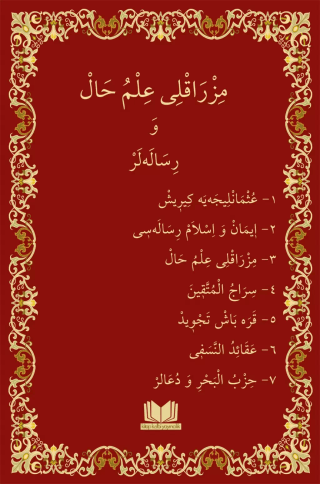 مِزْرَاقْلِى عِلْمُ حَالْ
وَ
رِسَالَهلَرْ
١- عُثْمَانْلِيجَهيَه كِيرِيشْ
٢- اِيمَانْ وَ اِسْلَامْ رِسَالَهسِى
٣- مِزْرَاقْلِى عِلْمُ حَالْ
٤- سِرَاجُ الْمُتَّقِينَ
٥- قَرَه بَاشْ تَجْوِيدْ
٦- عَقَائِدُ النَّسَفِى
٧- حِزْبُ الْبَحْرِ وَ دُعَالَرْ